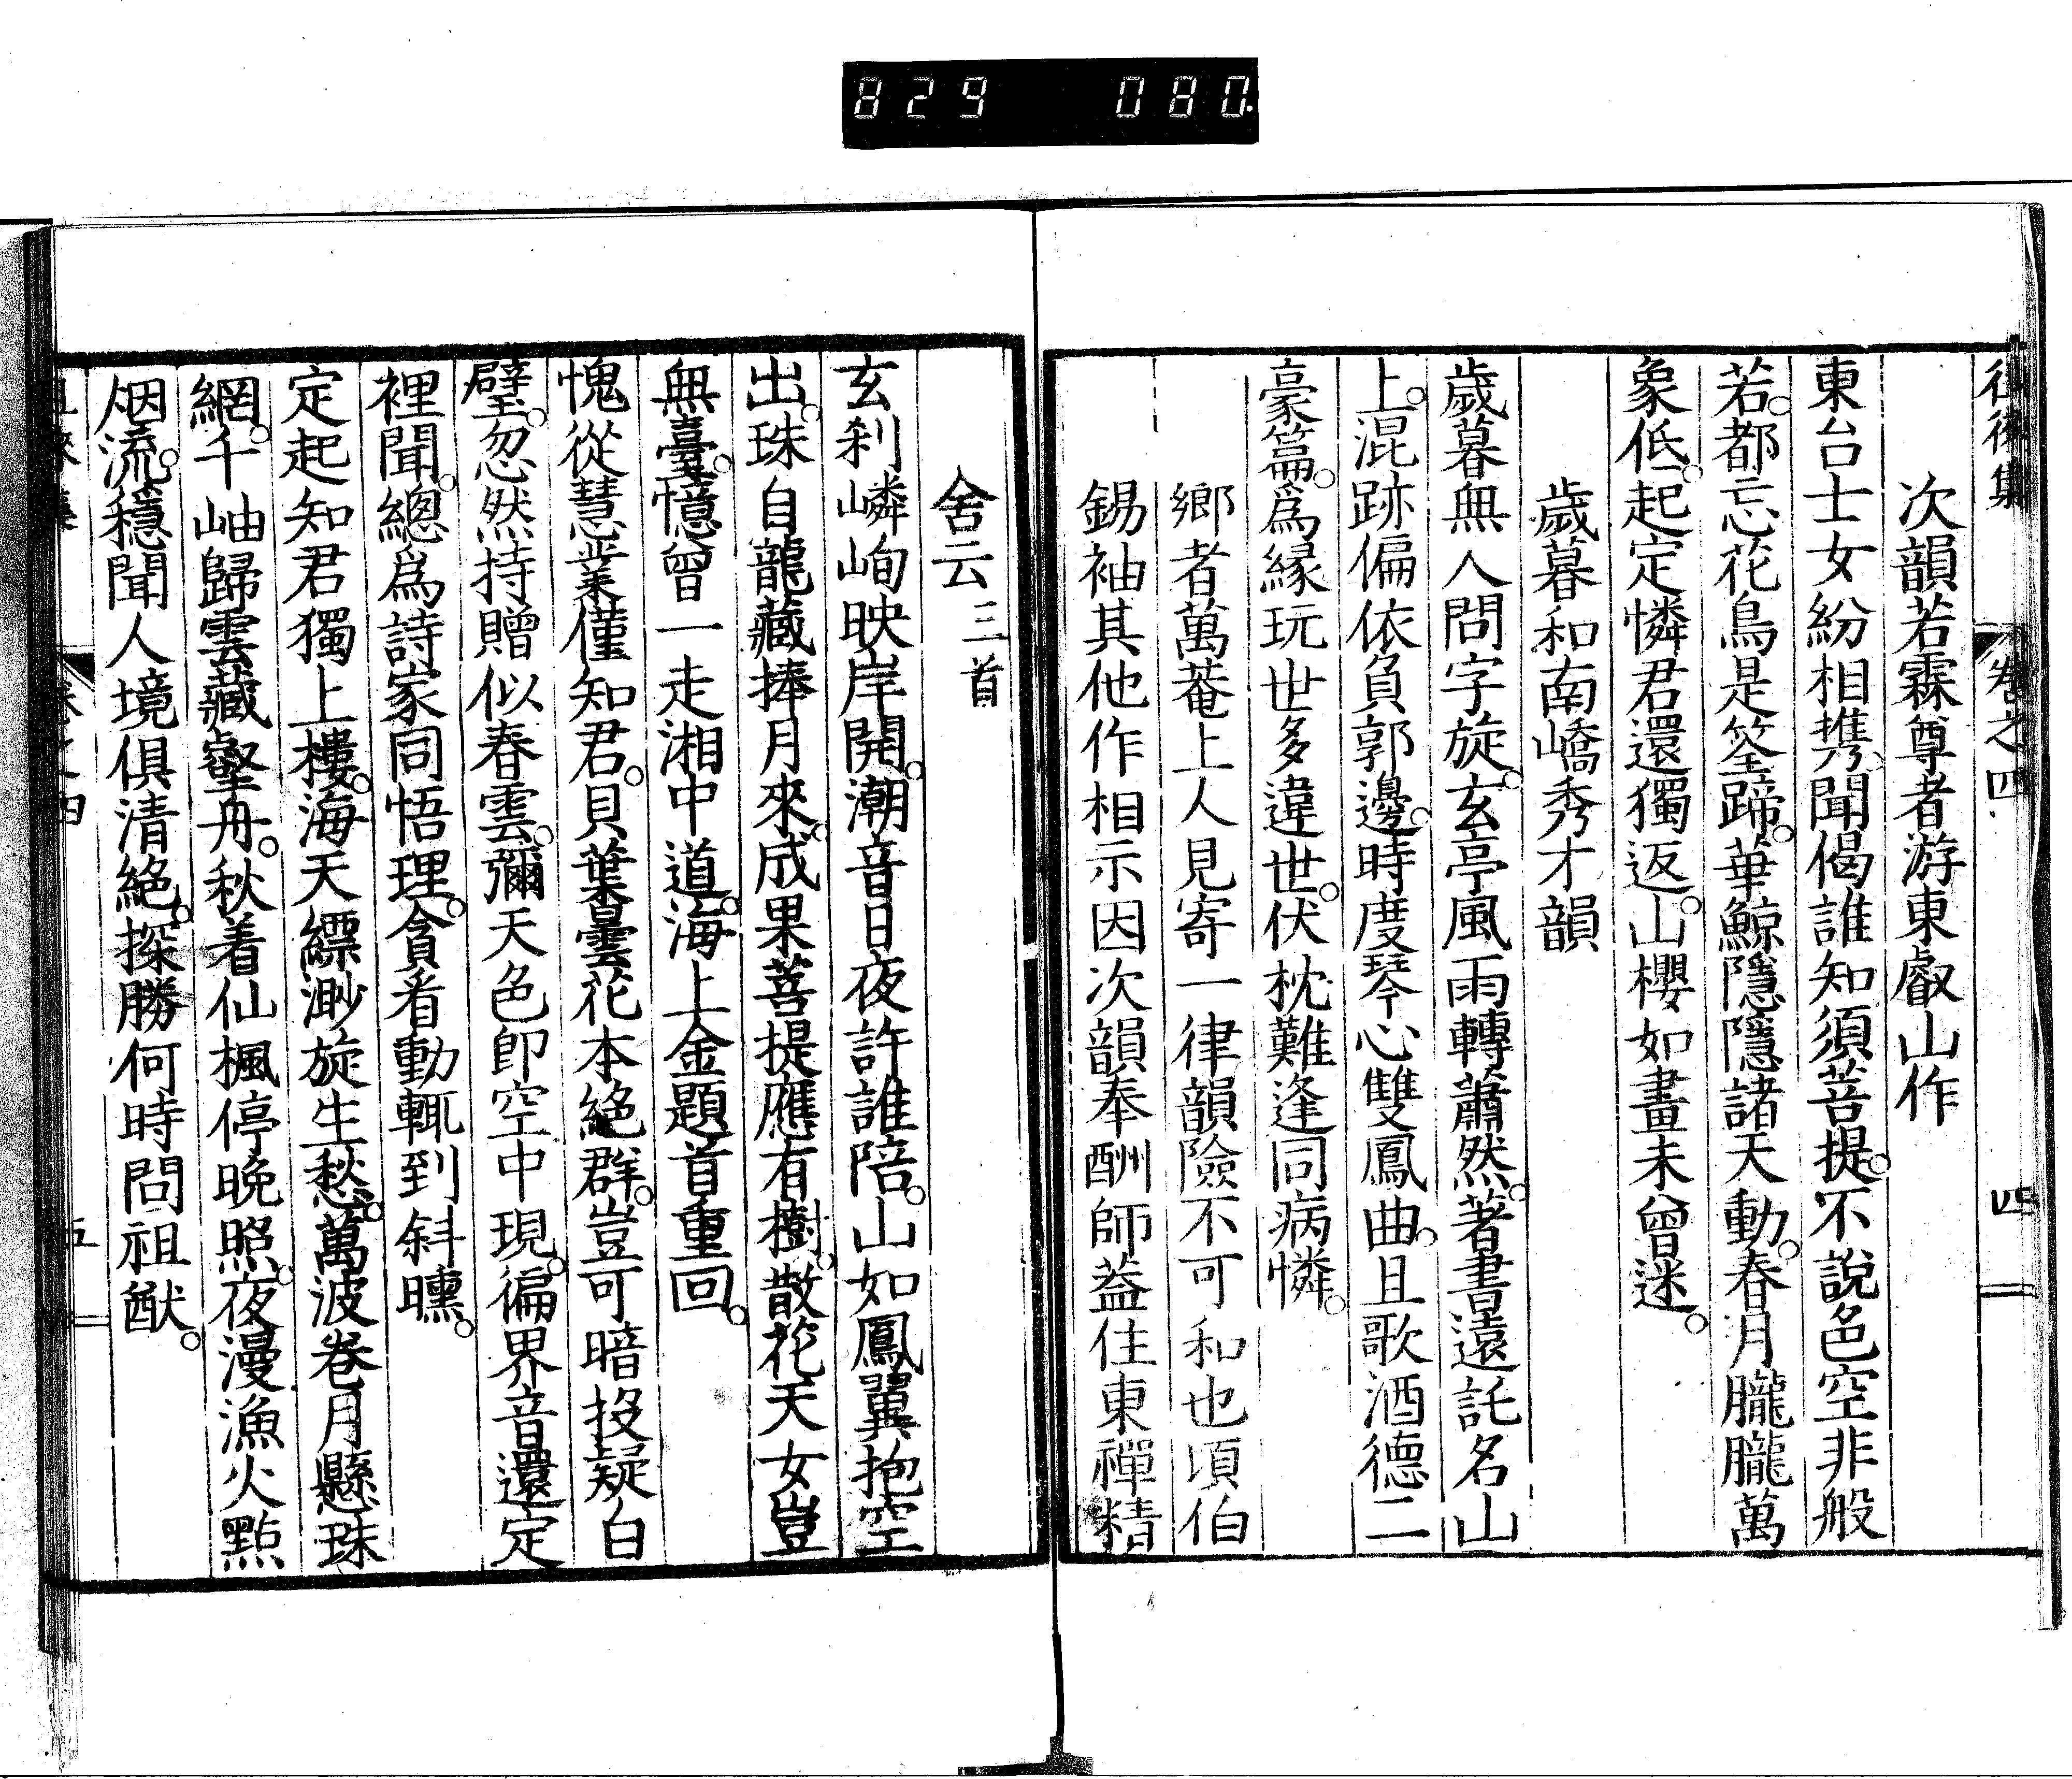 829 080.
徂徠集 卷之四 四
次韻若霖尊者游東叡山作
東台士女紛相携。聞偈誰知須菩提。不說色空非般
若。都忘花鳥是筌蹄。華鯨隱隱諸天動。春月朧朧萬
象低。起定憐君還獨返。山櫻如畫未曾迷。
歲暮和南嶠秀才韻
歲暮無人問字旋。玄亭風雨轉蕭然。著書遠託名山
上。混跡偏依負郭邊。時度琴心雙鳳曲。且歌酒德二
豪篇。爲緣玩世多違世。伏枕難逢同病憐。
鄉者萬菴上人見寄一律韻險不可和也頃伯
錫袖其他作相示因次韻奉酬師葢住東禪精
舍云 三首
玄刹嶙峋映岸開。潮音日夜許誰陪。山如鳳翼抱空
出。珠自龍藏捧月來。成果菩提應有樹。散花天女豈
無臺。憶曾一走湘中道。海上金題首重回。
愧從慧業僅知君。貝葉曇花本絕群。豈可暗投疑白
璧。忽然持贈似春雲。彌天色卽空中現。徧界音還定
裡聞。總爲詩家同悟理。貪看動輒到斜曛。
定起知君獨上樓。海天縹渺旋生愁。萬波卷月懸珠
網。千岫歸雲藏壑舟。秋着仙楓停晚照。夜漫漁火點
烟流。穩聞人境俱清絕。探勝何時問祖猷。
徂徠集 卷之四 五